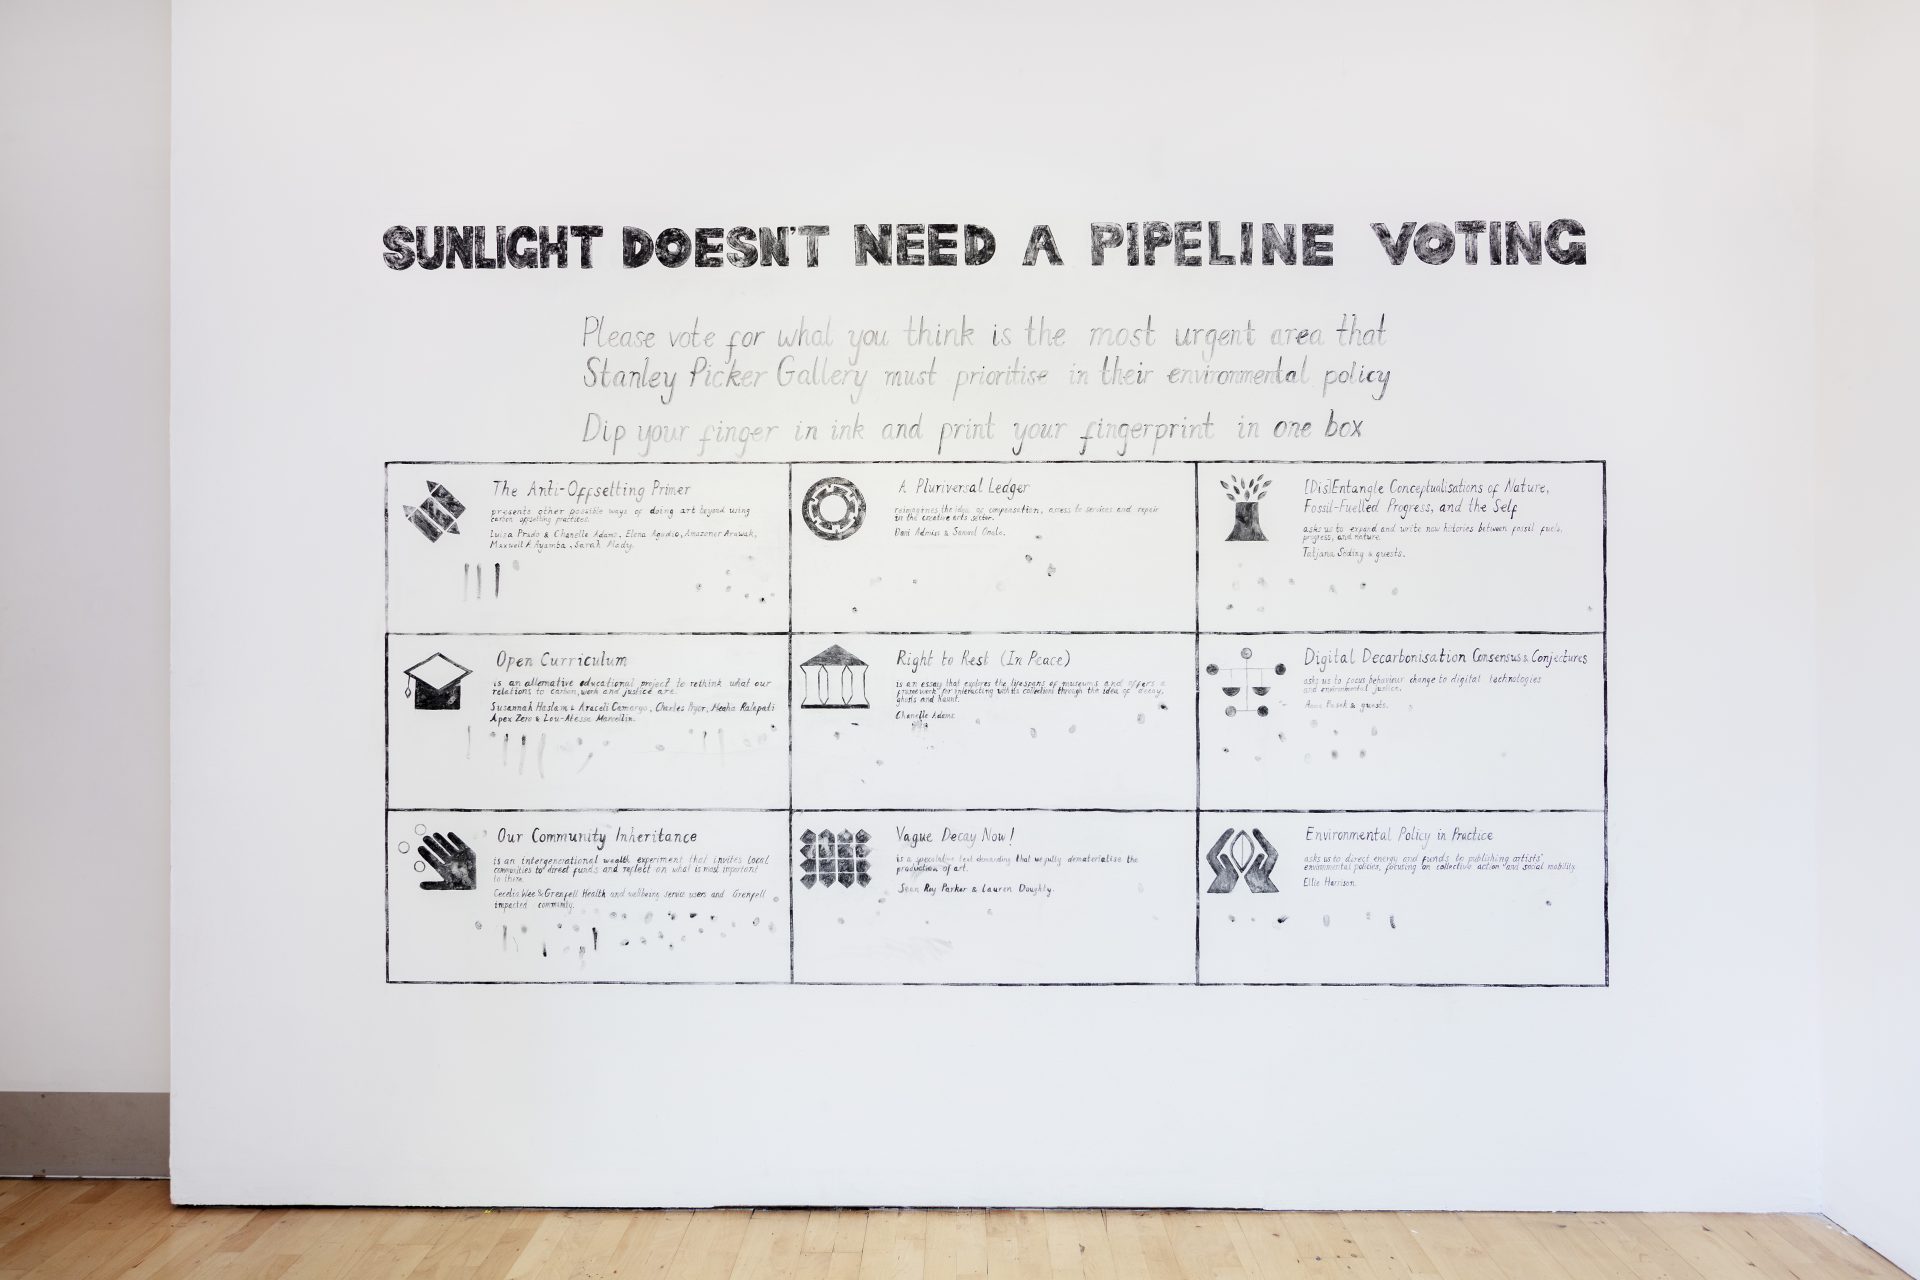 SUNLIGHT DOESN'T NEED A PIPELINE VOTING
Please vote for what you think is the most urgent area that
Stanley Picker Gallery must prioritise in their environmental policy
Dip your finger in ink and print your fingerprint in one box
The Anti-Offsetting Primer
presents other possible ways of doing art beyond using
carbon offsetting practices.
Luiza Prado & Chanelle Adams, Elena Agudio, Amazoner Arawak,
Maxwell A Ayamba, Sarah
A Pluriversal Ledger
reimagines the idea of compensation, access to services and repair
in the creative arts sector.
Dani Admiss & Samuel
[Dis]Entangle Conceptualisations of Nature,
Fossil-Fuelled Progress, and the Self
asks us to expand and write new histories between fossil fuels,
progress, and nature.
Tatjana Söding & guests.
Open Curriculum
is an alternative educational project to rethink what our
relations to carbon, work and justice are.
Susannah Haslam & Araceli Camargo, Charles Pryor,
Apex Zero & Lou-Atessa Marcellin.
Right to Rest (In Peace)
is an essay that explores the lifespans of museums and offers a
framework for interacting with its collections through the idea of decay,
ghosts and haunt.
Chanelle Adams
Digital Decarbonisation Consensus & Conjectures
asks us to focus behaviour change to digital technologies
and environmental justice.
Anne Pasek & guests.
Our Community Inheritance
is an intergenerational wealth experiment that invites local
communities to direct funds and reflect on what is most important
to them.
Cecelia Wee & Grenfell Health and wellbeing service users and Grenfell
impacted community.
Vague Decay Now!
is a speculative text demanding that we fully dematerialise the
production of art.
Sean Roy Parker & Lauren Doughty.
Environmental Policy in Practice
asks us to direct energy and funds to publishing artists'
environmental policies, focusing on collective action and social mobility.
Ellie Harrison.